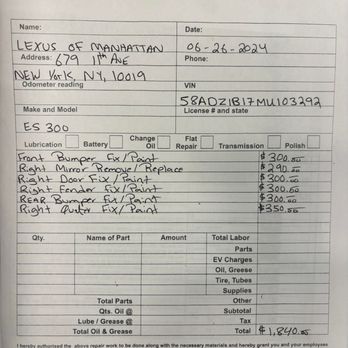 Name:
Date:
LEXUS OF MANHATTAN
06-26-2024
Address: 679 11th AVE
Phone:
NEW YORK, NY, 10019
Odometer reading
VIN
58ADZ1B17MU103292
Make and Model
License # and state
ES 300
Lubrication Battery Change Oil Flat Repair Transmission Polish
Front Bumper Fix/Paint $300.00
Right Mirror Remove/Replace $290.00
Right Door Fix/Paint $300.00
Right Fender Fix/Paint $300.00
REAR Bumper Fix/Paint $300.00
Right Fix/Paint $350.00
Qty. Name of Part Amount Total Labor
Parts
EV Charges
Oil, Greese
Tire, Tubes
Supplies
Total Parts Other
Qts. Oil @ Subtotal
Lube / Grease @ Tax
Total Oil & Grease Total $1,840.00
I hereby authorized the above repair work to be done along with the necessary materials and hereby grant you and your employees